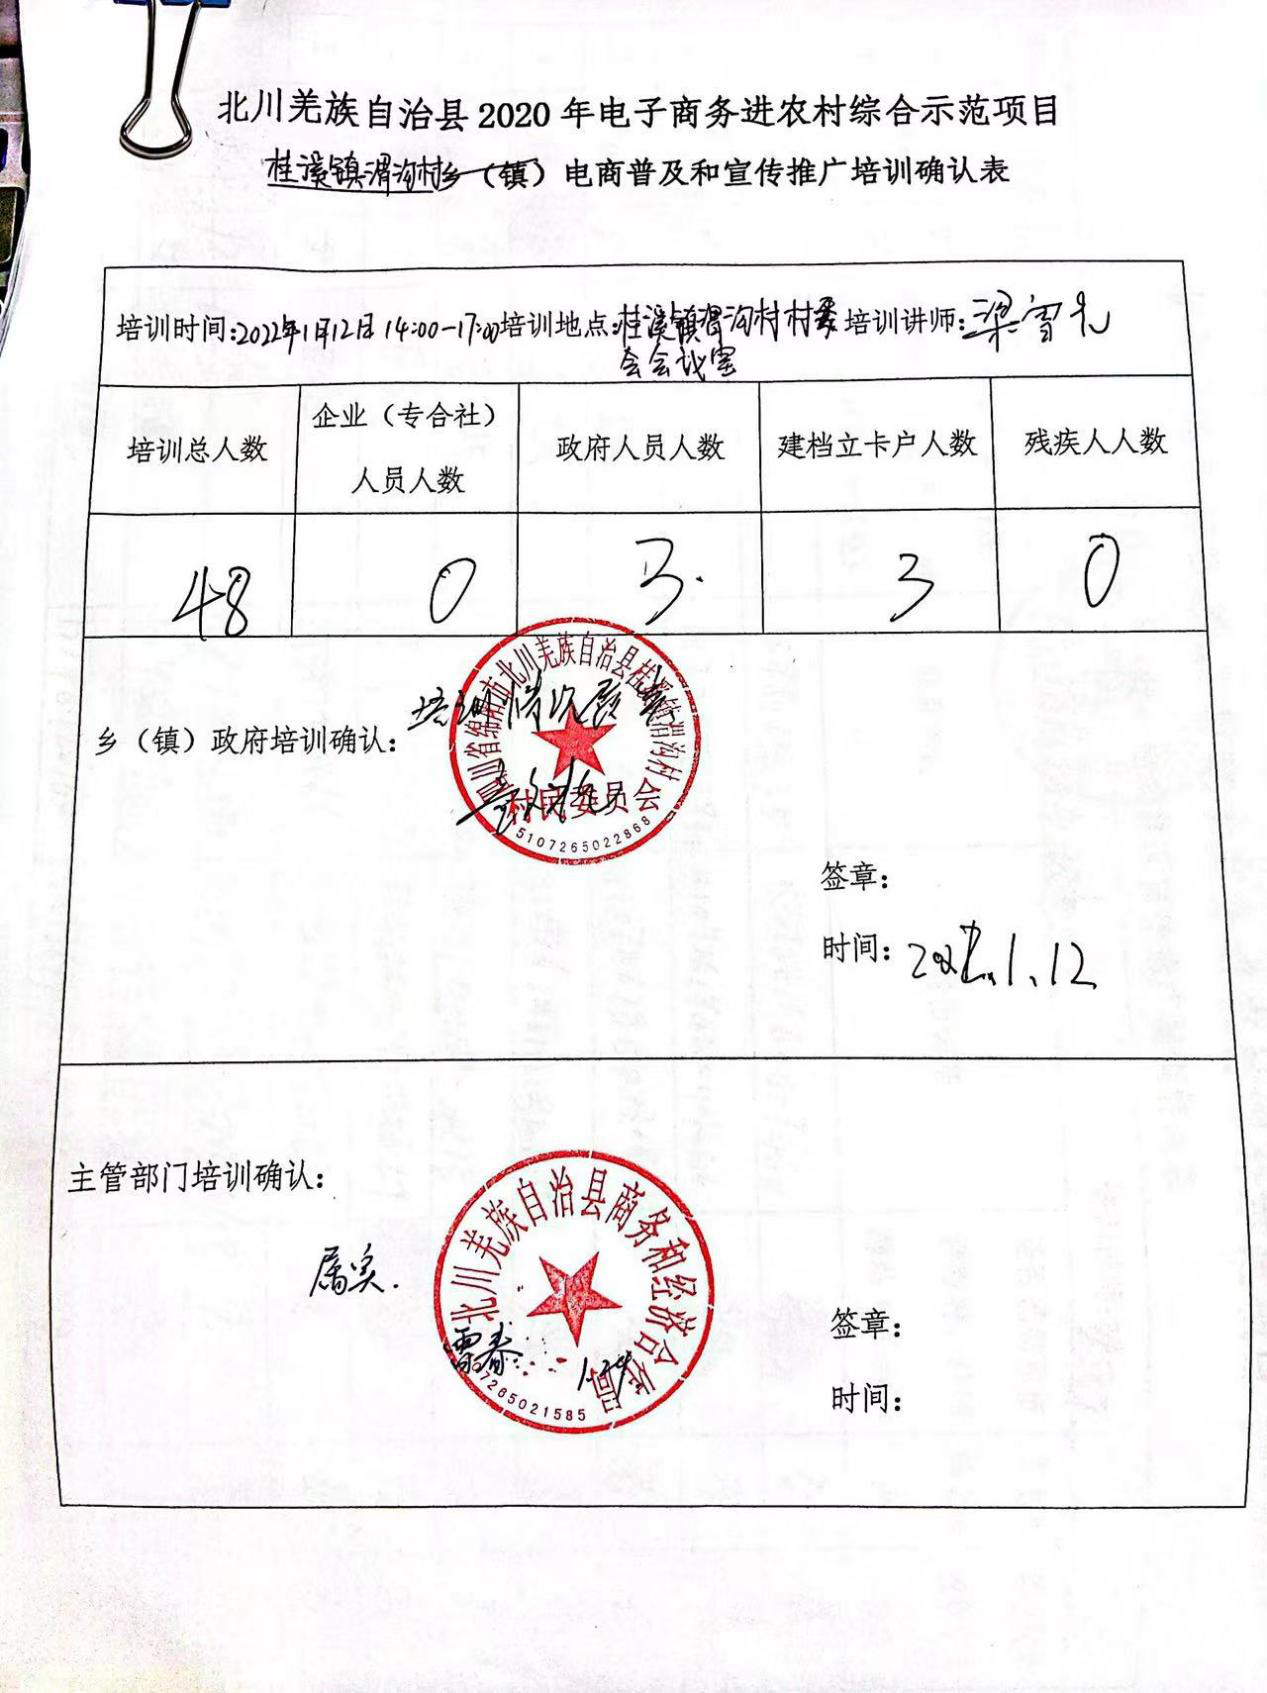 北川羌族自治县2020年电子商务进农村综合示范项目
桂溪镇渭沟村乡（镇）电商普及和宣传推广培训确认表
培训时间:2022年1月12日14:00-17:00培训地点:桂溪镇渭沟村村委培训讲师:梁雪
会会议室
培训总人数
企业（专合社）
人员人数
政府人员人数
建档立卡户人数
残疾人人数
48
0
3.
3
0
乡（镇）政府培训确认:
培训情况属实
四川省绵阳市北川羌族自治县桂溪镇渭沟村
村民委员会
5107265022868
签章:
时间:2022.1.12
主管部门培训确认:
属实.
北川羌族自治县商务和经济合作局
春
1.24
7265021585
签章:
时间: